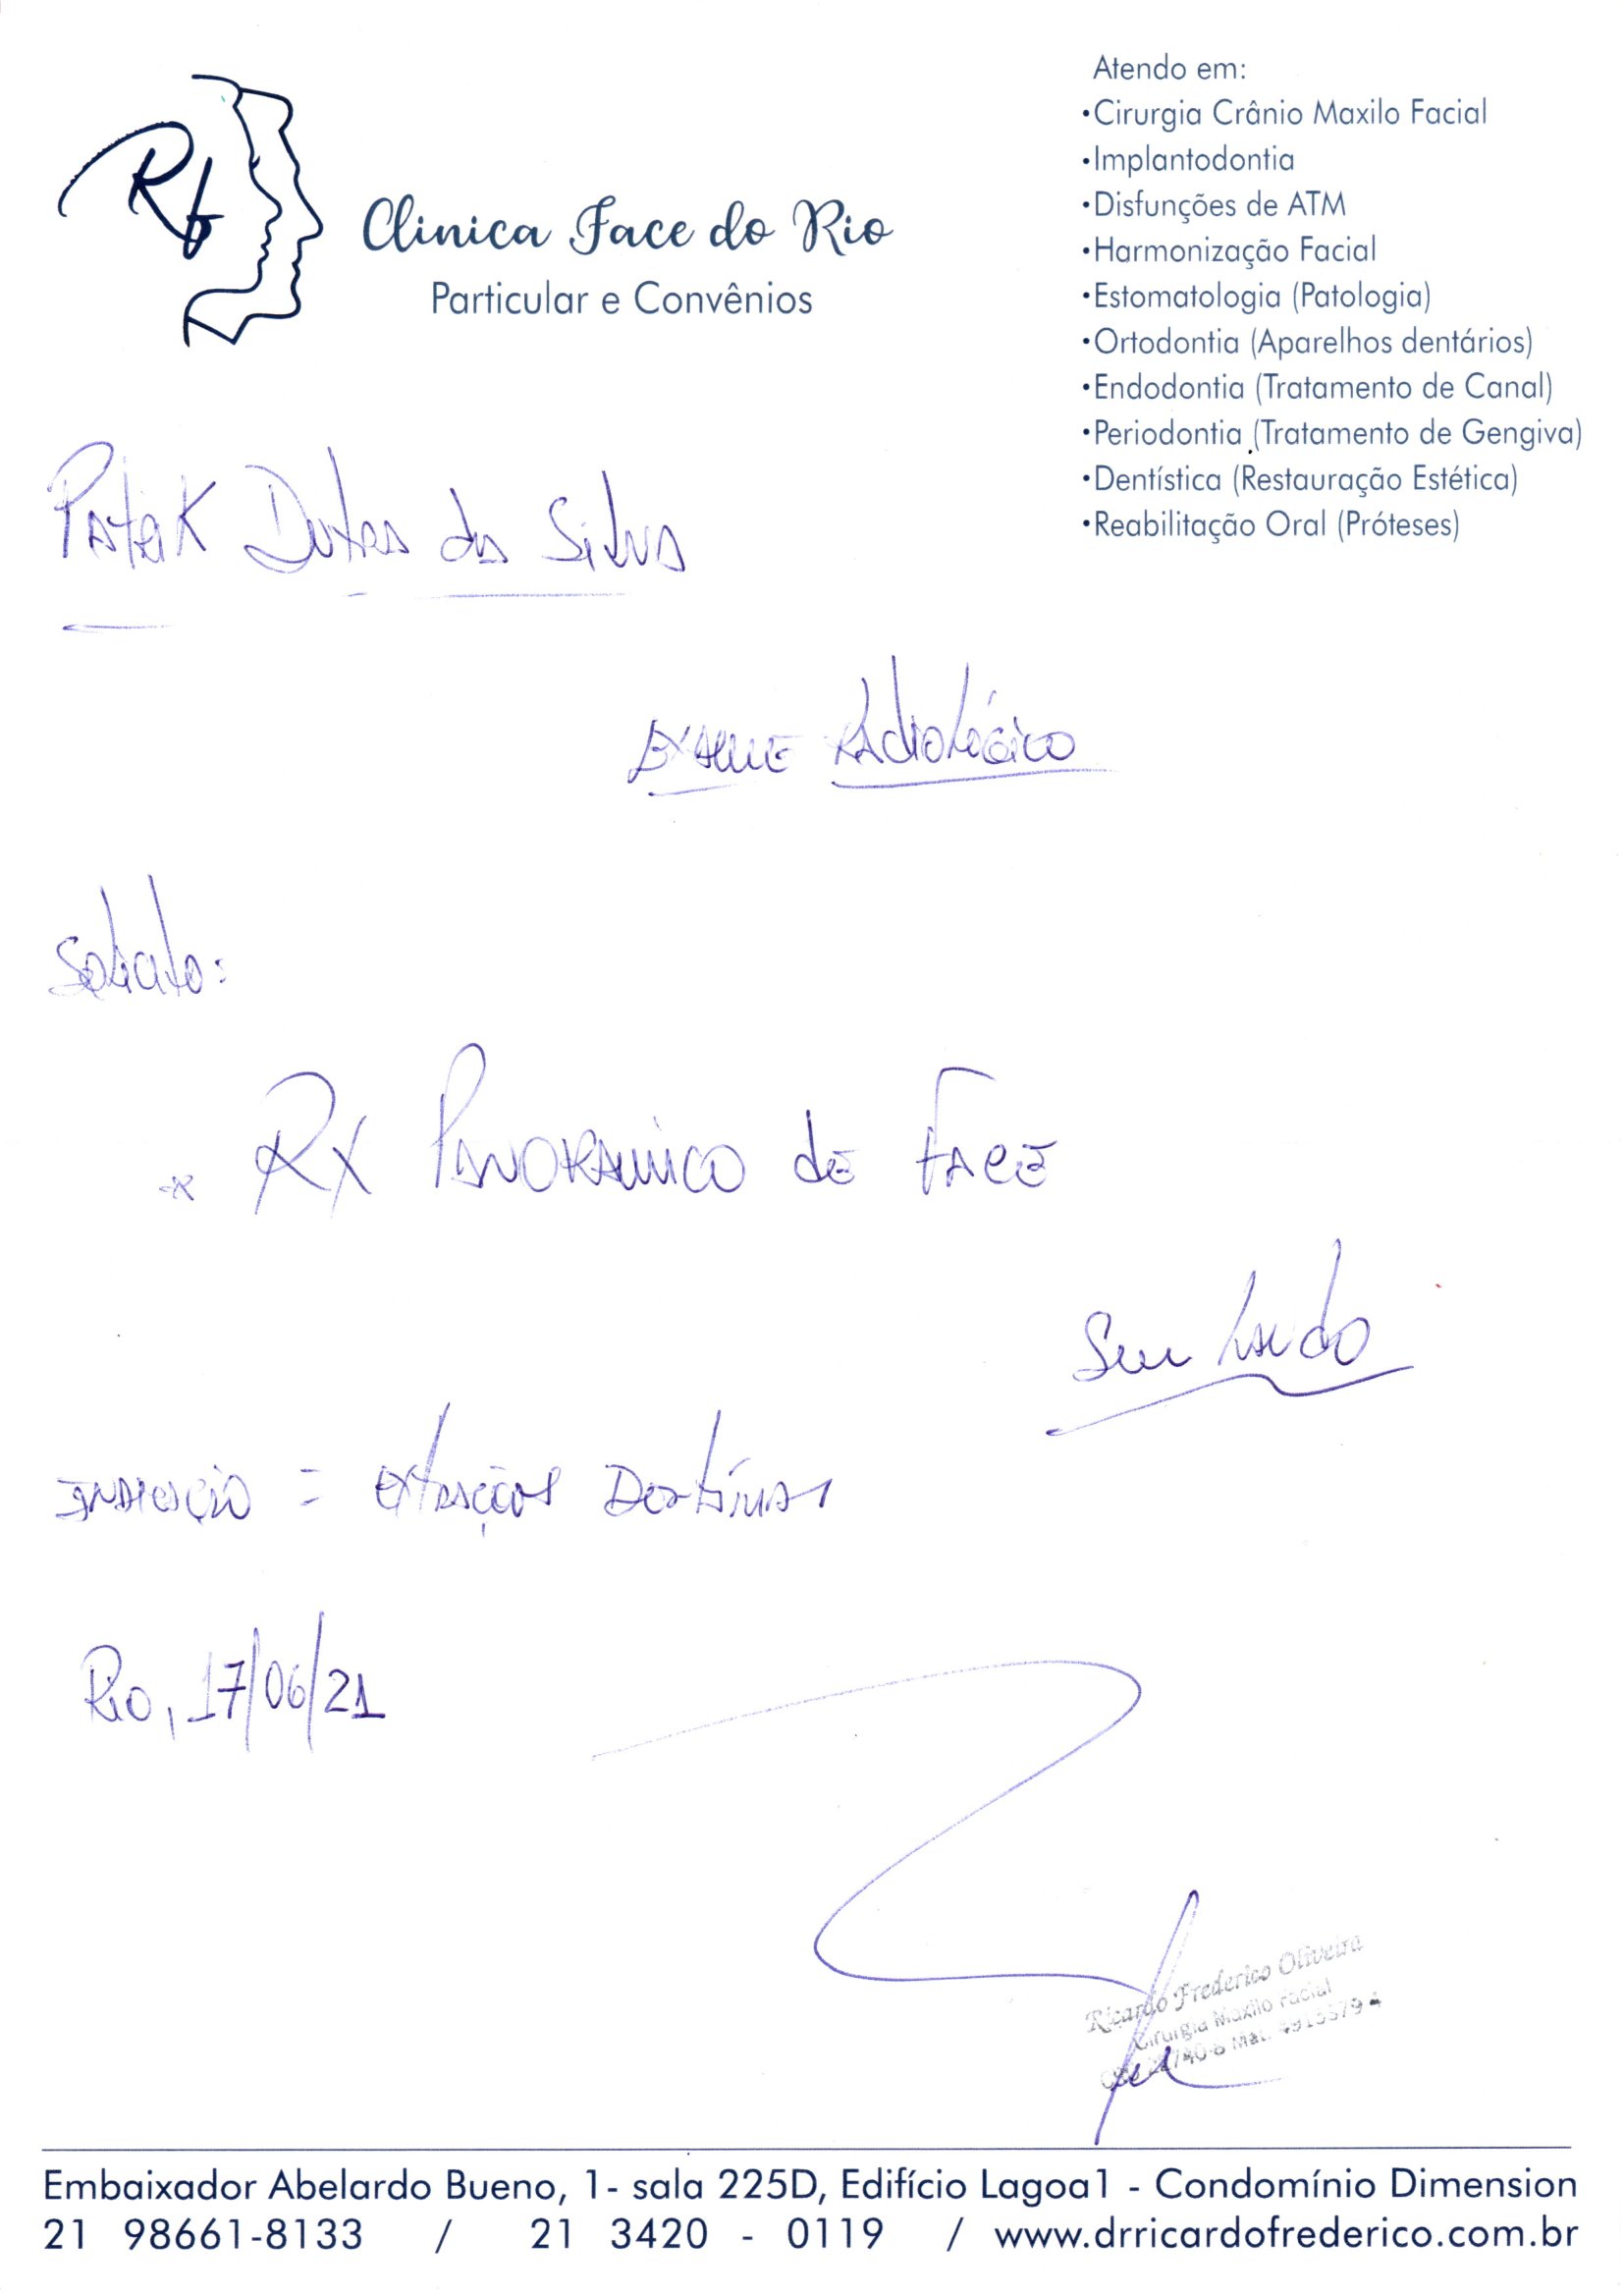 Rf
Clinica Face do Rio
Particular e Convênios
Atendo em:
•Cirurgia Crânio Maxilo Facial
•Implantodontia
•Disfunções de ATM
•Harmonização Facial
•Estomatologia (Patologia)
•Ortodontia (Aparelhos dentários)
•Endodontia (Tratamento de Canal)
•Periodontia (Tratamento de Gengiva)
•Dentística (Restauração Estética)
•Reabilitação Oral (Próteses)
Dutra da Silva
Exame Radiológico
Solicito:
* RX Panoramico de Face
Sem Laudo
Indicação = extrações Dentárias
Rio, 17/06/21
Ricardo Frederico Oliveira
Cirurgia Maxilo Facial
Mat.
Embaixador Abelardo Bueno, 1- sala 225D, Edifício Lagoa1 - Condomínio Dimension
21 98661-8133 / 21 3420 - 0119 / www.drricardofrederico.com.br